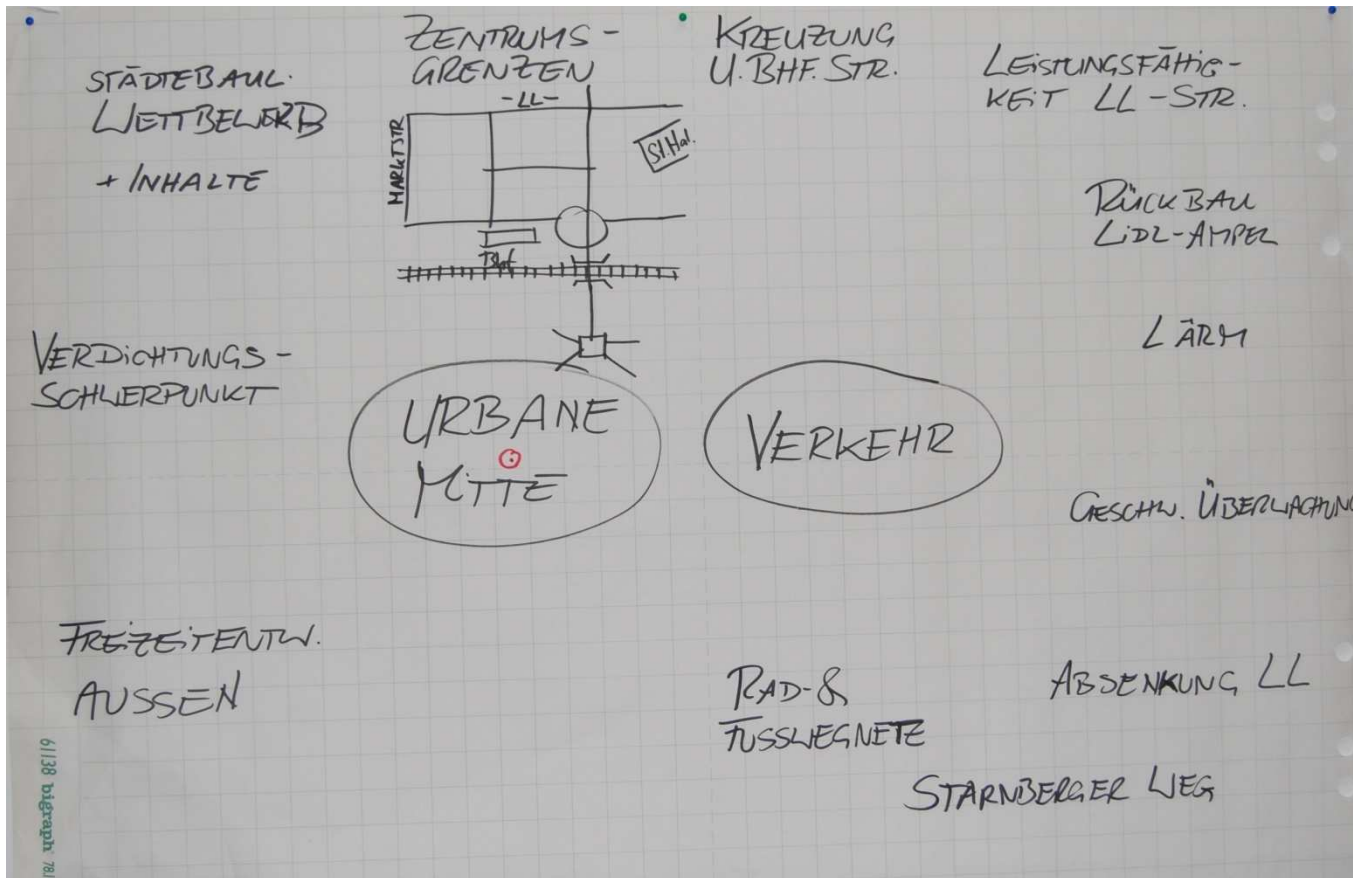 STÄDTEBAUL.
WETTBEWERB
+ INHALTE
ZENTRUMS-
GRENZEN
-LL-
MARKTSTR
St.Hal.
Bhf
KREUZUNG
U. BHF. STR.
LEISTUNGSFÄHIG-
KEIT LL-STR.
RÜCKBAU
LIDL-AMPEL
LÄRM
VERDICHTUNGS-
SCHWERPUNKT
URBANE
MITTE
VERKEHR
GESCHW. ÜBERWACHUNG
FREIZEITENTW.
AUSSEN
RAD- &
FUSSWEGNETZ
ABSENKUNG LL
STARNBERGER WEG
61138 bigraph